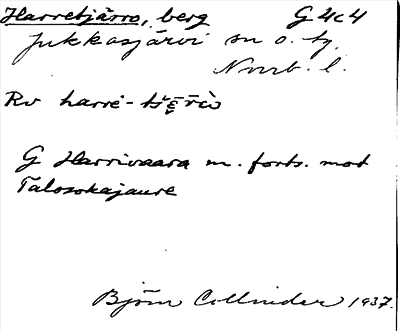 Harretjårro, berg G 4c4
Jukkasjärvi sn o. tg.
Norrb. l.
Rv harrē-
G Harrivaara m. forts. mot
Talosokajaure
Björn Collinder 1937.